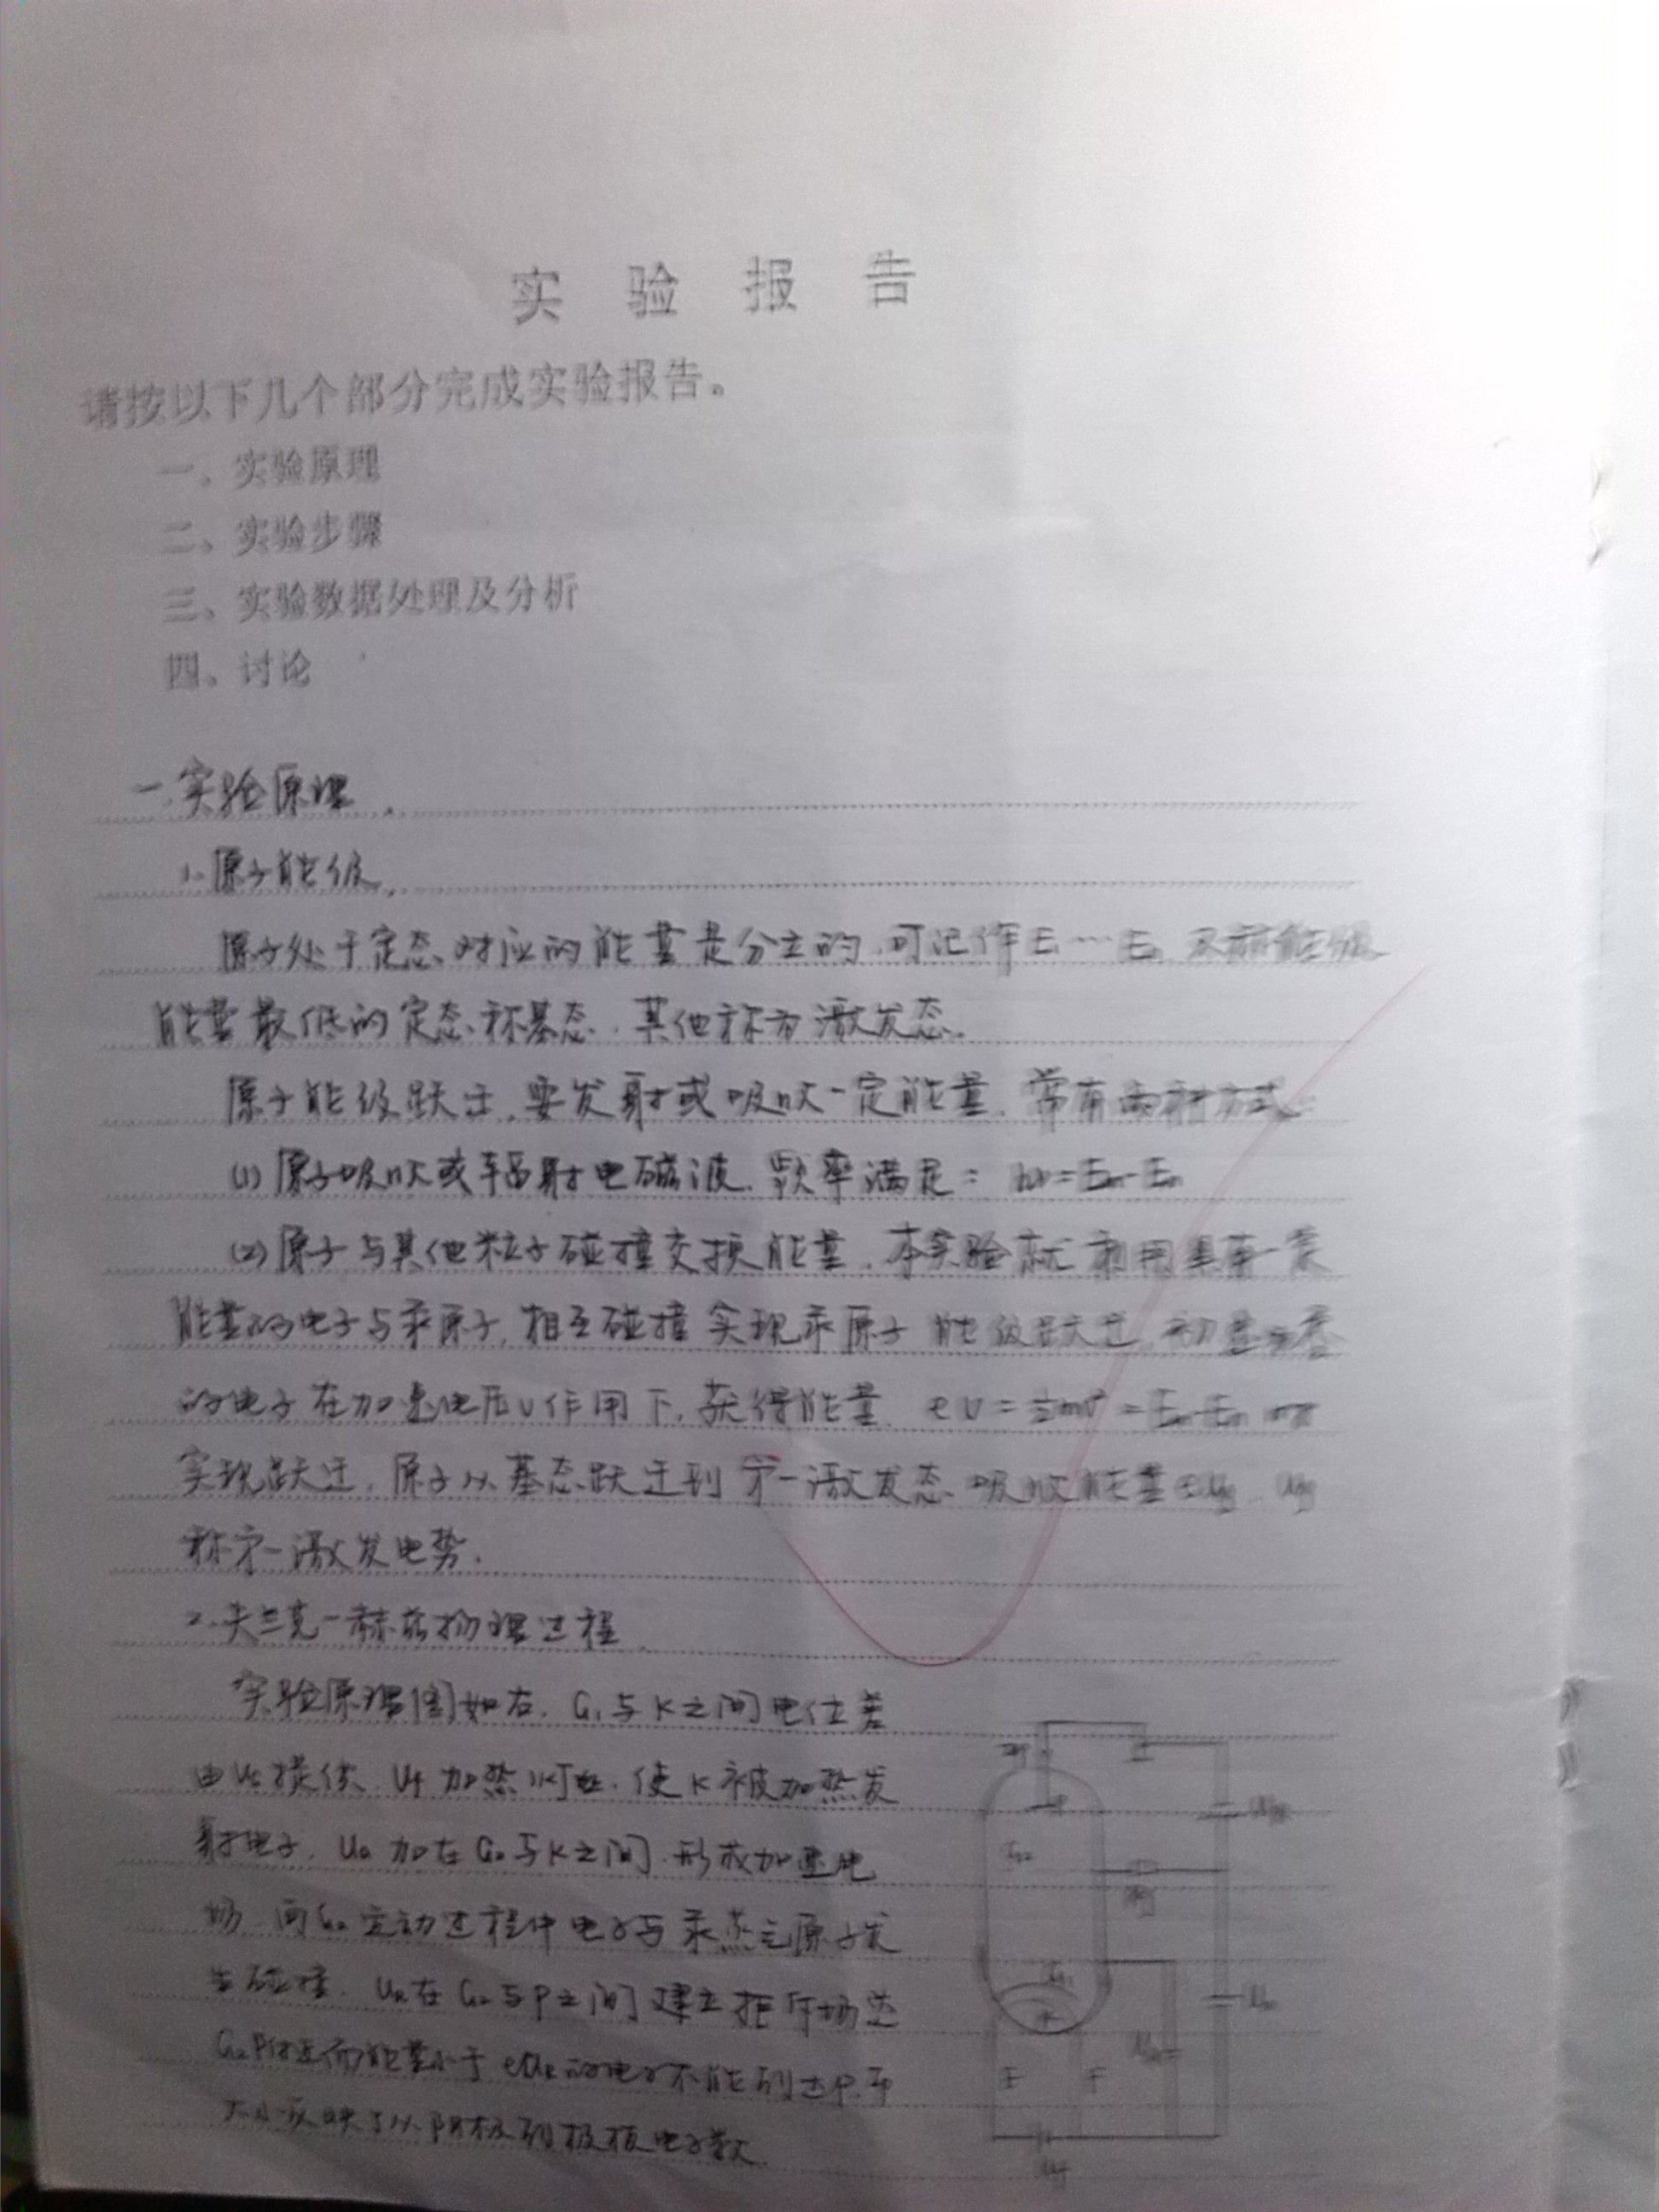 实验报告
请按以下几个部分完成实验报告。
一、实验原理
二、实验步骤
三、实验数据处理及分析
四、讨论
一.实验原理.
1.原子能级.
原子处于定态.对应的能量是分立的.可记作E₁…Eₙ
能量最低的定态称基态.其他称为激发态.
原子能级跃迁.要发射或吸收一定能量.常有两种方式
(1)原子吸收或辐射电磁波.频率满足: hν=Eₘ-Eₙ
(2)原子与其他粒子碰撞交换能量.本实验就利用具有一定
能量的电子与汞原子.相互碰撞实现汞原子能级跃迁.初
的电子在加速电压U作用下.获得能量. eU=½mv²=Eₘ-Eₙ
实现跃迁.原子从基态跃迁到第一激发态.吸收能量
称第一激发电势.
2.夫兰克-赫兹物理过程.
实验原理图如右. G₁与K之间电位差
由 提供. Uf加热灯丝.使K被加热发
射电子. 加在G₂与K之间.形成加速电
场.向G₂运动过程中电子与汞蒸气原子发
生碰撞. 在G₂与P之间建立拒斥场.达
G₂附近而能量小于 的电子不能到达P.
大小反映了从阴极到极板电子数.
P
K
F F
Uf